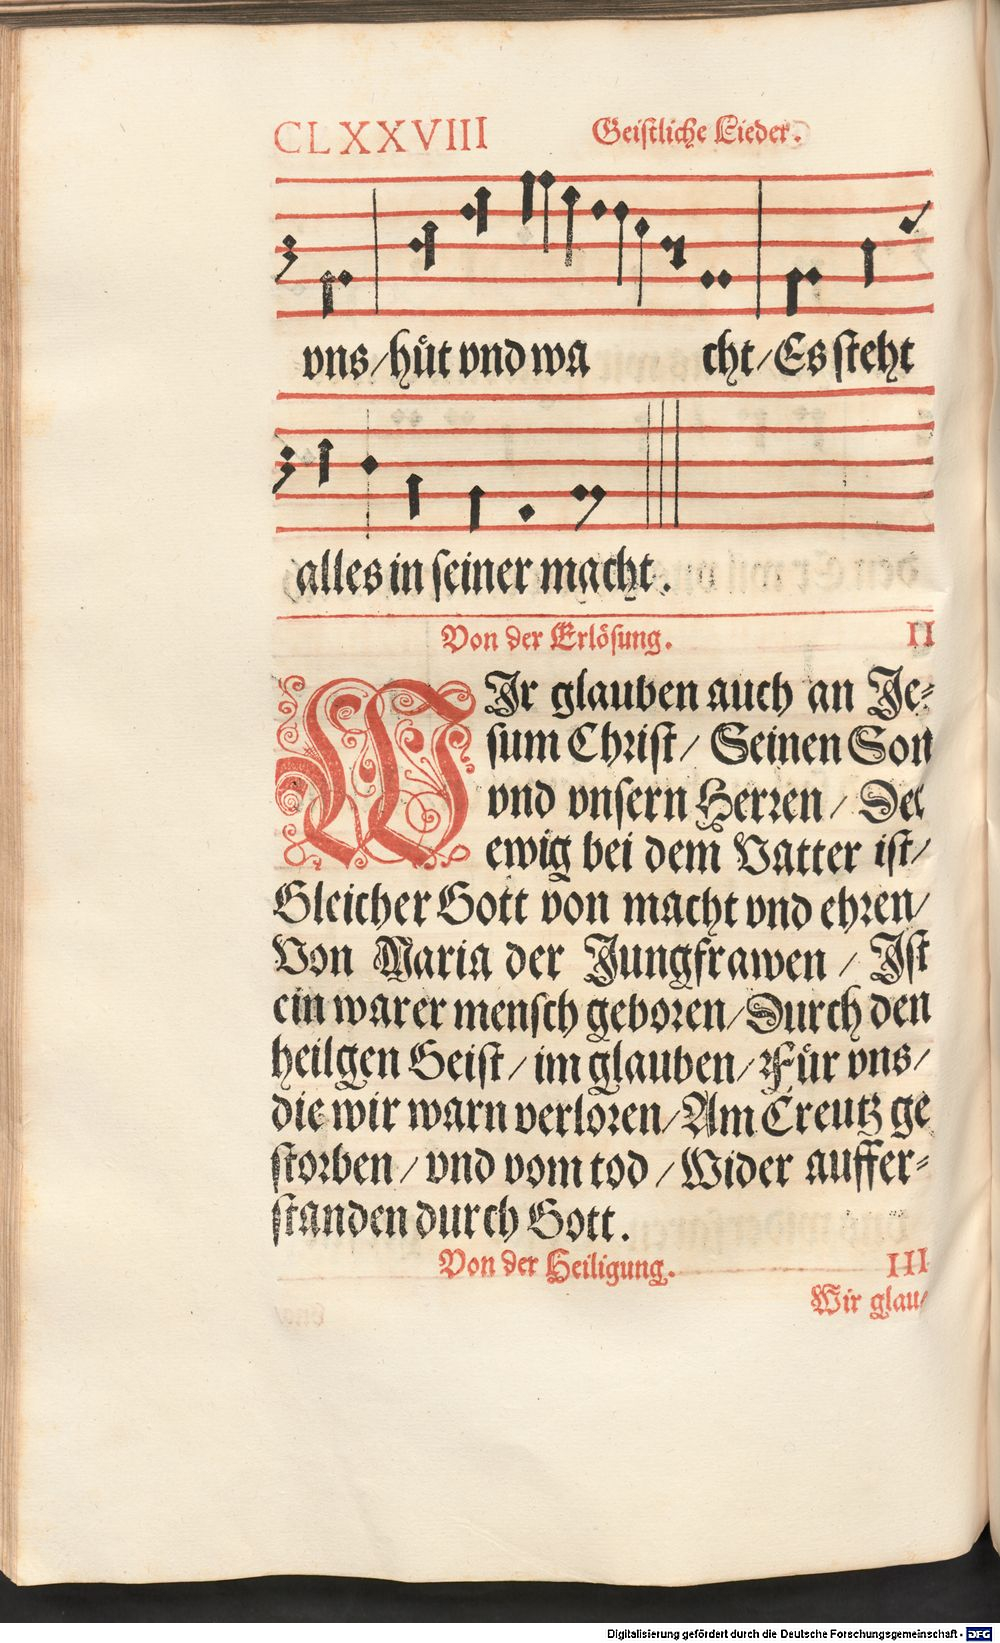 CLXXVIII Geistliche Lieder.
vns/hüt vnd wa cht/Es steht
alles in seiner macht.
Von der Erlösung. II
WIr glauben auch an Je-
sum Christ/ Seinen Son
vnd vnsern Herren/ Der
ewig bei dem Vatter ist/
Gleicher Gott von macht vnd ehren/
Von Maria der Jungfrawen / Ist
ein warer mensch geboren/Durch den
heilgen Geist/im glauben/Für vns/
die wir warn verloren/Am Creutz ge
storben/vnd vom tod/Wider auffer-
standen durch Gott.
Von der Heiligung. III
Wir glau-
Digitalisierung gefördert durch die Deutsche Forschungsgemeinschaft - DFG